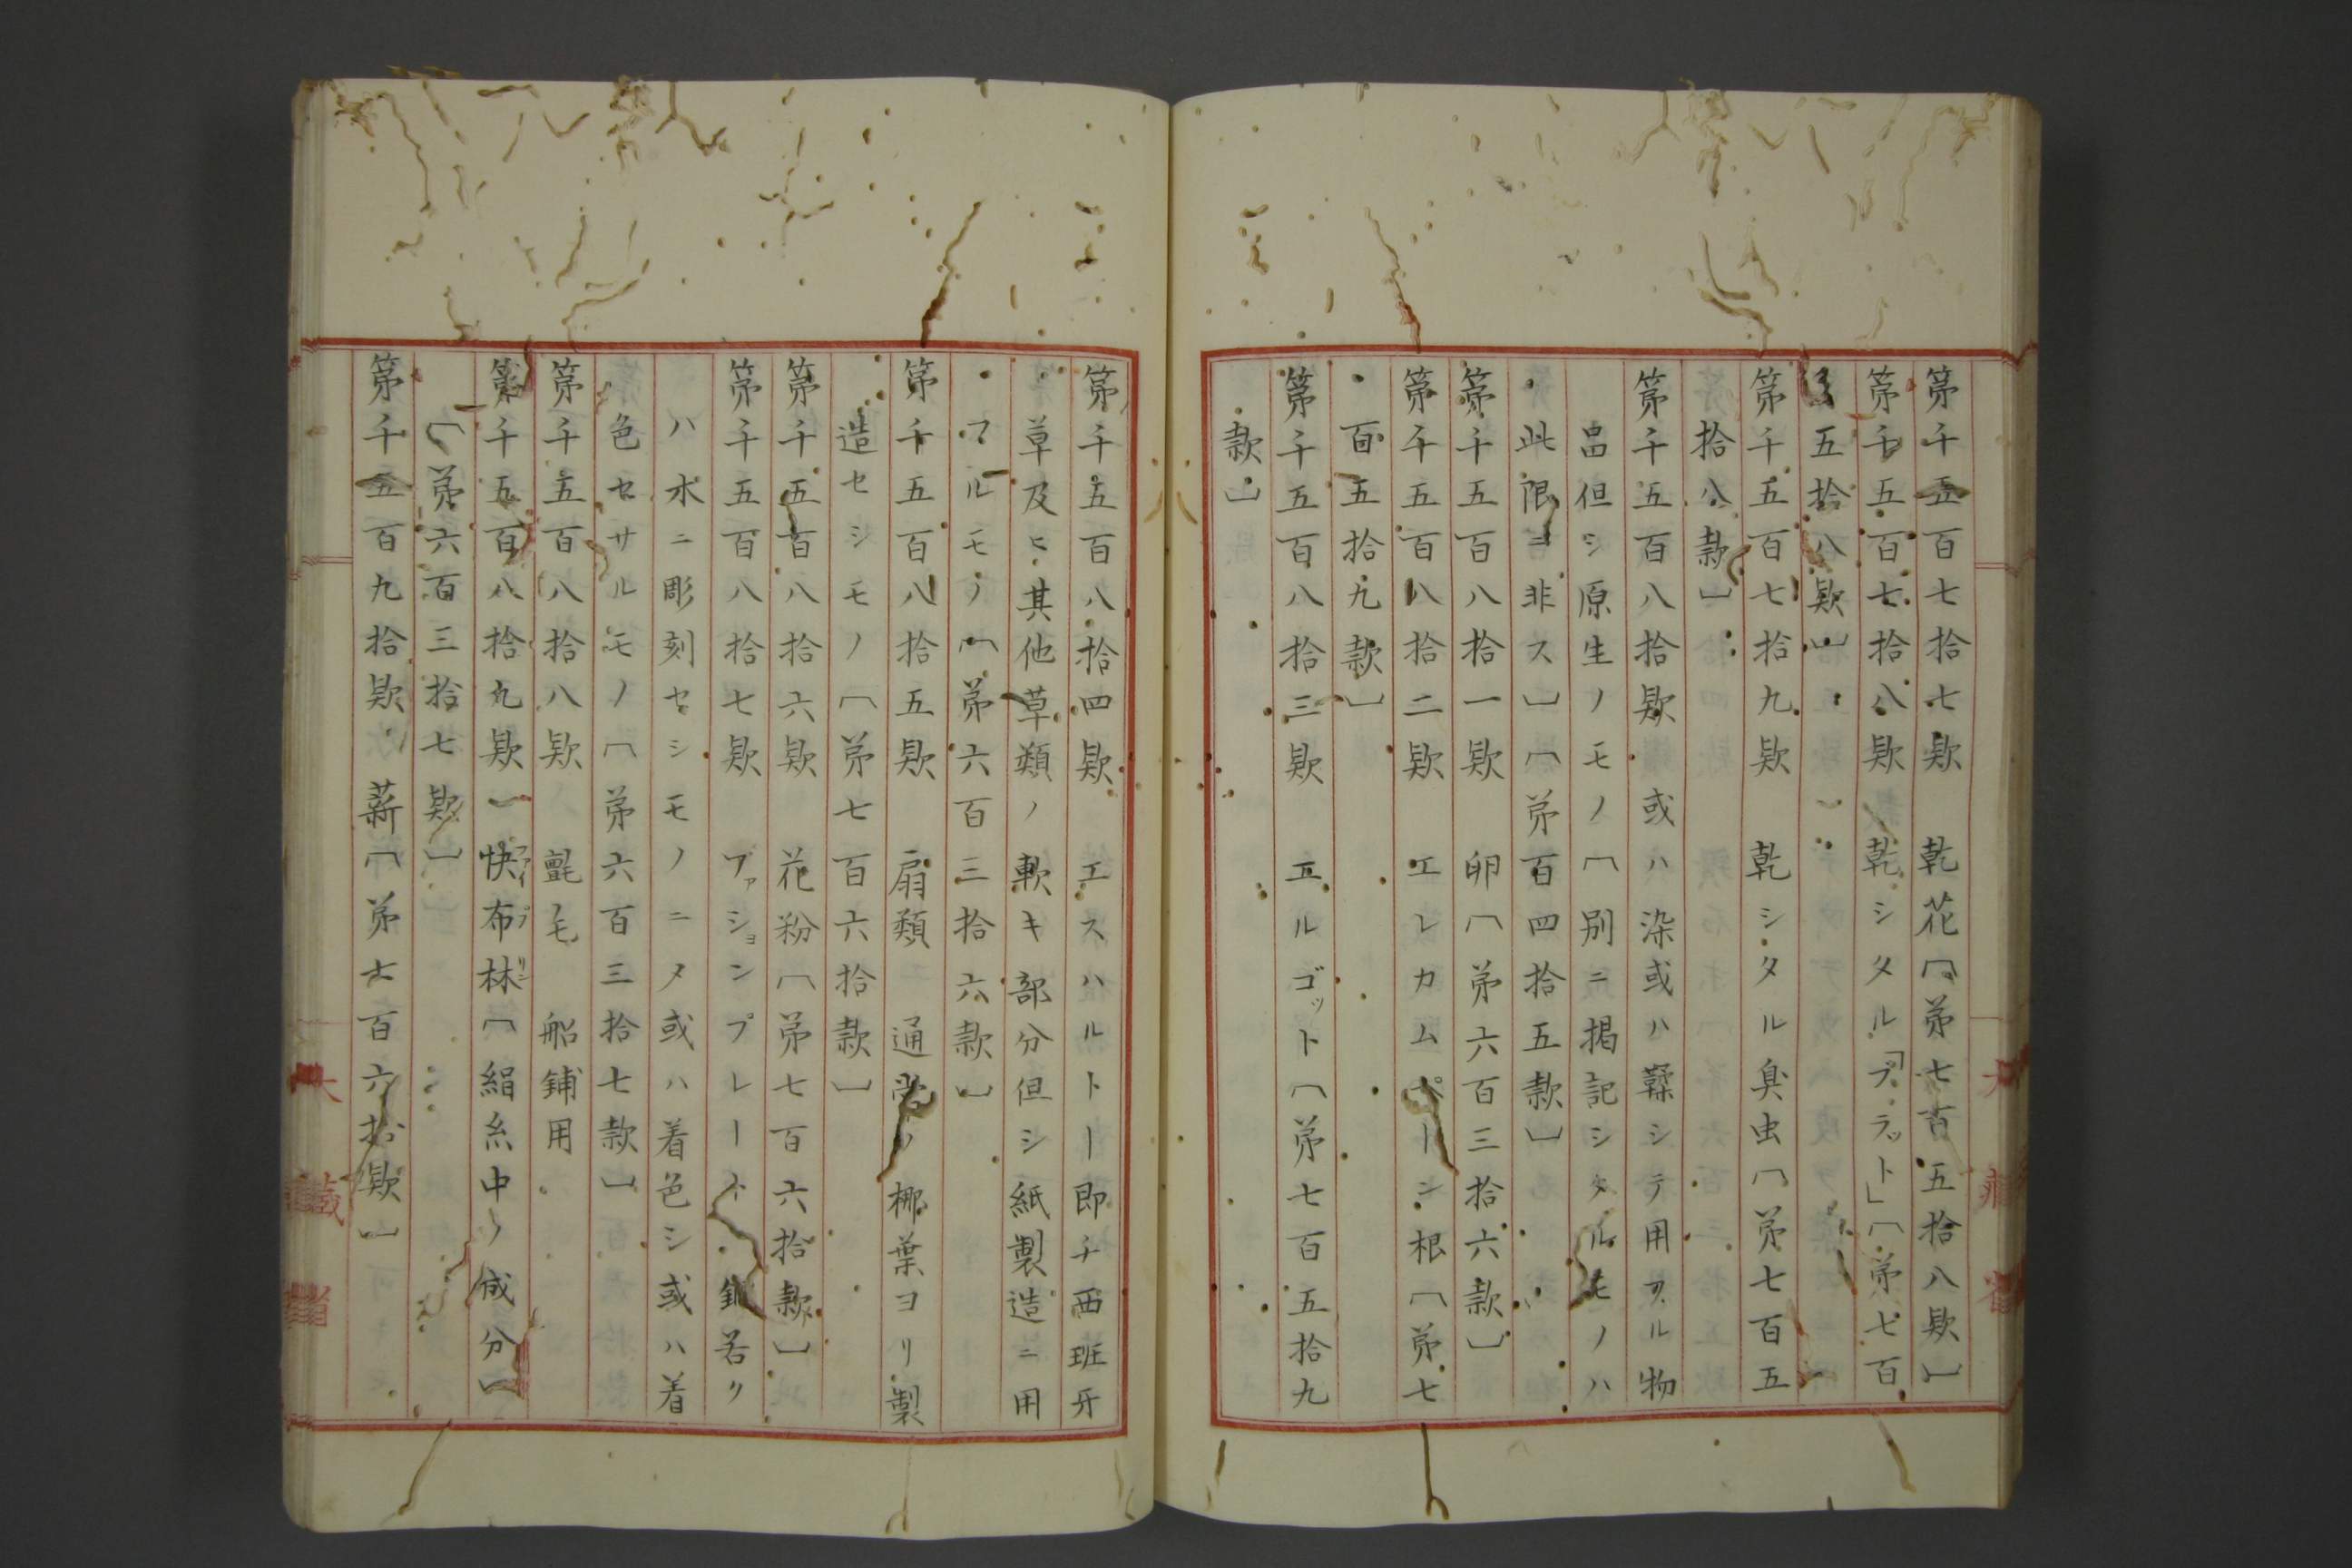 第千五百七拾七欵　乾花〔第七百五拾八欵〕
第千五百七拾八欵　乾シタル「プラット」〔第七百
五拾八欵〕
第千五百七拾九欵　乾シタル臭虫〔第七百五
拾八款〕
第千五百八拾欵　或ハ染或ハ鞣シテ用フル物
品但シ原生ノモノ〔別ニ掲記シタルモノハ
此限ニ非ス〕〔第百四拾五款〕
第千五百八拾一欵　卵〔第六百三拾六款〕
第千五百八拾二欵　エレカムペーン根〔第七
百五拾九款〕
第千五百八拾三欵　エルゴット〔第七百五拾九
款〕
第千五百八拾四欵　エスハルトー即チ西班牙
草及ヒ其他草類ノ軟キ部分但シ紙製造ニ用
フルモノ〔第六百三拾六款〕
第千五百八拾五欵　扇類　通常ノ椰葉ヨリ製
造セシモノ〔第七百六拾款〕
第千五百八拾六欵　花粉〔第七百六拾款〕
第千五百八拾七欵　ファションプレート　鋼若ク
ハ木ニ彫刻セシモノニタ或ハ着色シ或ハ着
色セサルモノ〔第六百三拾七款〕
第千五百八拾八欵　氈毛　船舗用
第千五百八拾九欵　快布林〔絹糸中ノ成分〕
〔第六百三拾七欵〕
第千五百九拾欵　薪〔第七百六拾欵〕
大藏省